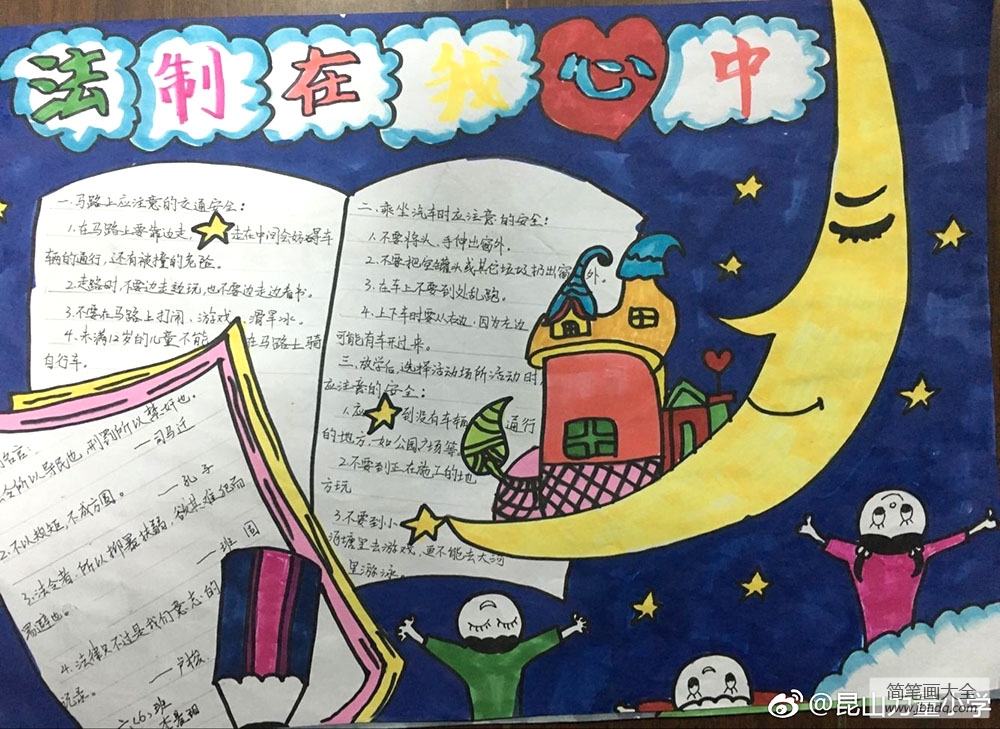 法制在我心中
一.马路上应注意的交通安全:
1.在马路上要靠边走, 走在中间会妨碍车
辆的通行,还有被撞的危险。
2.走路时,不要边走边玩,也不要边走边看书。
3.不要在马路上打闹、游戏、滑旱冰。
4.未满12岁的儿童不能 在马路上骑
自行车。
二.乘坐汽车时应注意的安全:
1.不要将头、手伸出窗外。
2.不要把空罐头或其它垃圾扔出窗外。
3.在车上不要到处乱跑。
4.上下车时要从右边,因为左边
可能有车开过来。
三.放学后,选择活动场所活动时,
应注意的安全:
1.应 到没有车辆 通行
的地方,如公园广场等
2.不要到正在施工的地
方玩
3.不要到小
河塘里去游戏,更不能去大河
里游泳。
名言:
令所以导民也,刑罚所以禁奸也。
——司马迁
不以规矩,不成方圆。
——孔子
3.法令者,所以抑暴扶弱,欲其难犯而
易避也。
——班固
4.法律只不过是我们意志的
记录。
——卢梭
六(6)班
@昆山
小学
简笔画大全
www.jbhdq.com